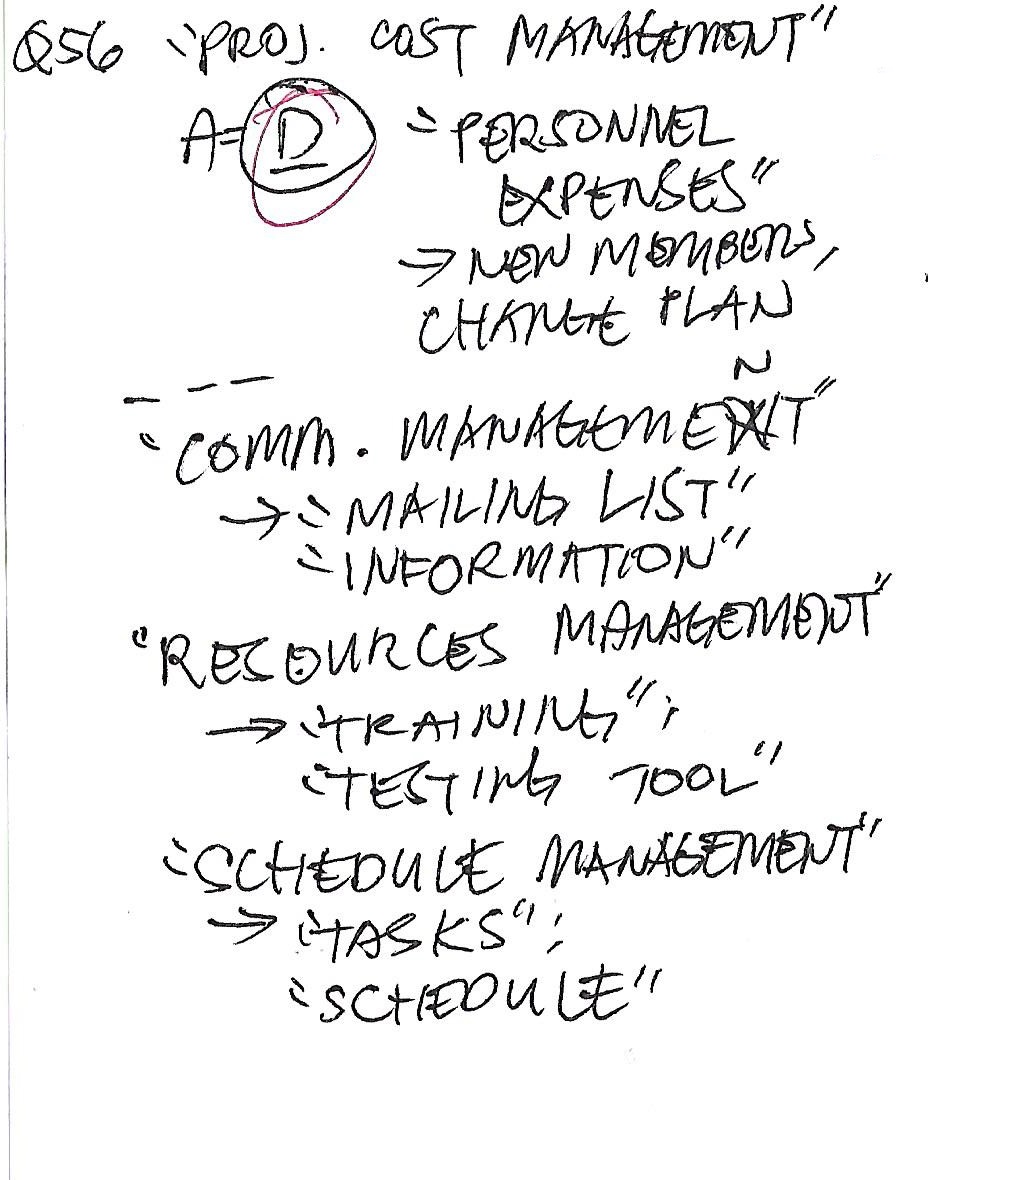 Q56 "PROJ. COST MANAGEMENT"
A=D "PERSONNEL
EXPENSES"
→ NEW MEMBERS,
CHANGE PLAN
- - -
N
"COMM. MANAGEMENT"
→ "MAILING LIST"
"INFORMATION"
"RESOURCES MANAGEMENT"
→ "TRAINING";
"TESTING TOOL"
"SCHEDULE MANAGEMENT"
→ "TASKS";
"SCHEDULE"